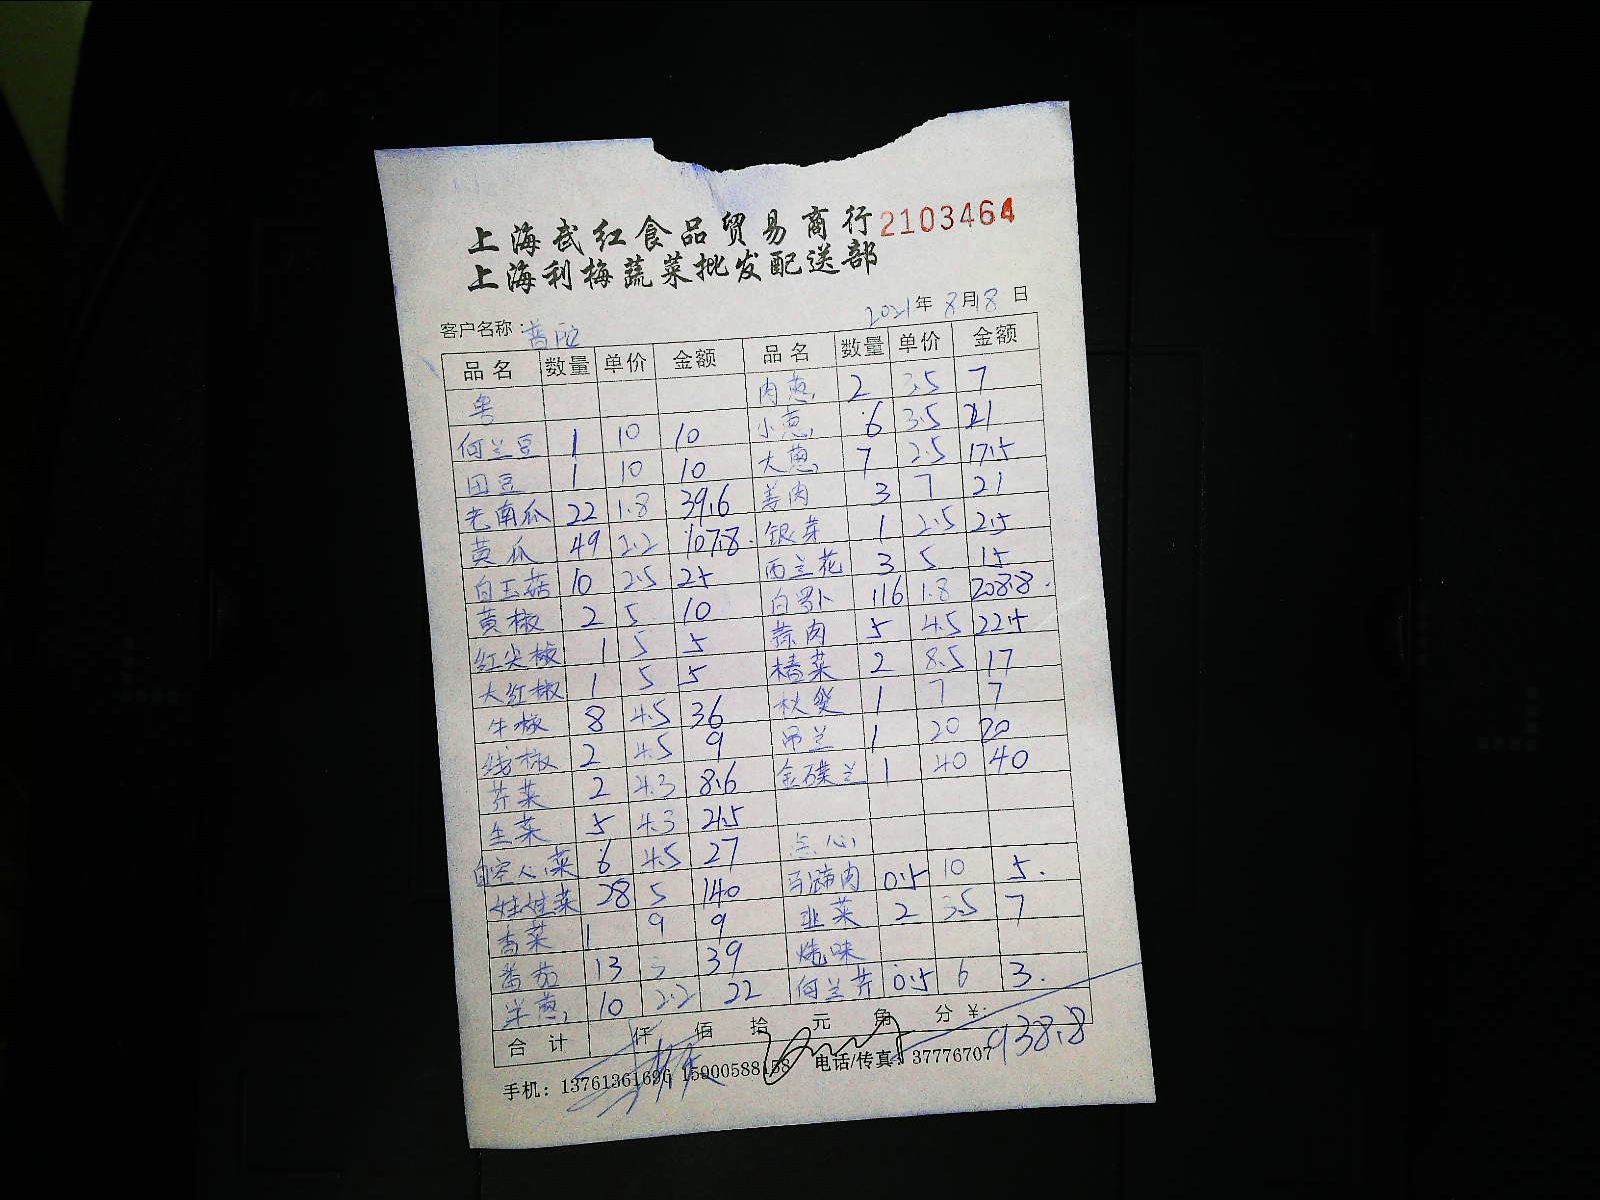 上海武红食品贸易商行 2103464
上海利梅蔬菜批发配送部
客户名称: 2021年8月8日
品名 数量 单价 金额 品名 数量 单价 金额
粤 肉葱 2 3.5 7
何兰豆 1 10 10 小葱 6 3.5 21
田豆 1 10 10 大葱 7 2.5 17.5
老南瓜 22 1.8 39.6 姜肉 3 7 21
黄瓜 49 2.2 107.8 银芽 1 2.5 2.5
白玉菇 10 2.5 25 西兰花 3 5 15
黄椒 2 5 10 白罗卜 116 1.8 208.8
红尖椒 1 5 5 蒜肉 5 4.5 22.5
大红椒 1 5 5 椿菜 2 8.5 17
牛椒 8 4.5 36 秋葵 1 7 7
线椒 2 4.5 9 吊兰 1 20 20
芥菜 2 4.3 8.6 金碟兰 1 40 40
生菜 5 4.3 21.5
白空心菜 6 4.5 27 点心
娃娃菜 28 5 140 马蹄肉 0.5 10 5.
香菜 1 9 9 韭菜 2 3.5 7
番茄 13 3 39 烧味
洋葱 10 2.2 22 何兰芹 0.5 6 3.
合计 仟 佰 拾 元 角 分 ¥: 938.8
手机: 13761361696 15900588158 电话/传真: 37776707